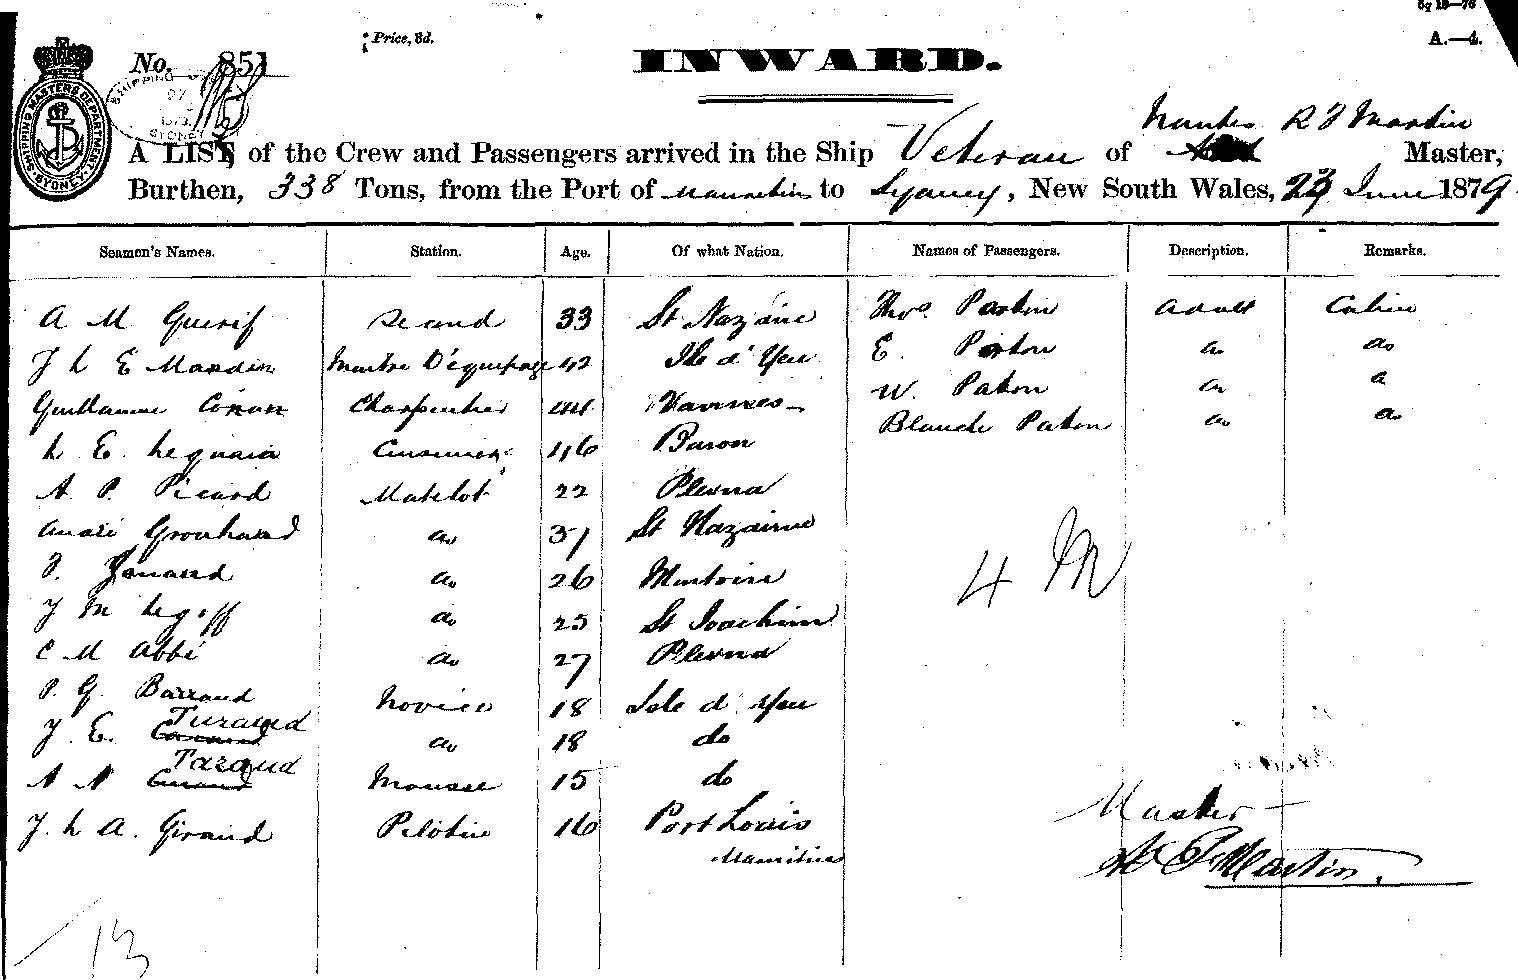 6q 19—76
Price, 3d.
A.—4.
No. 851
INWARD.
SHIPPING MASTERS DEPARTMENT SYDNEY
SHIPPING
SYDNEY
Nantes R F Martin
A LIST of the Crew and Passengers arrived in the Ship Veteran of Master,
Burthen, 338 Tons, from the Port of Mauritius to Sydney, New South Wales, 23 June 1879
Seamen's Names. Station. Age. Of what Nation. Names of Passengers. Description. Remarks.
A M Guerif Second 33 St Nazaire Thos. Paton Adult Cabin
J L E Mardin Maitre D'equipage 42 Ile d' Yeu E. Paton do do
Guillaume Conan Charpentier 44 Vannes W. Paton do do
L E. Lequaia Cuisinier 46 Baron Blanche Paton do do
A. P. Picard Matelot 22 Plerna
André Grouhaud do 37 St Nazaire
F. Jouaud do 26 Montoire
J M Legoff do 25 St Joachim
C M Abbé do 27 Plerna
P. G. Barraud Novice 18 Isle d' Yeu
J. E. Turaud do 18 do
A A Taraud Mousse 15 do
J. L A. Giraud Pilotin 16 Port Louis
Mauritius
4 In
Master
R F Martin.
13